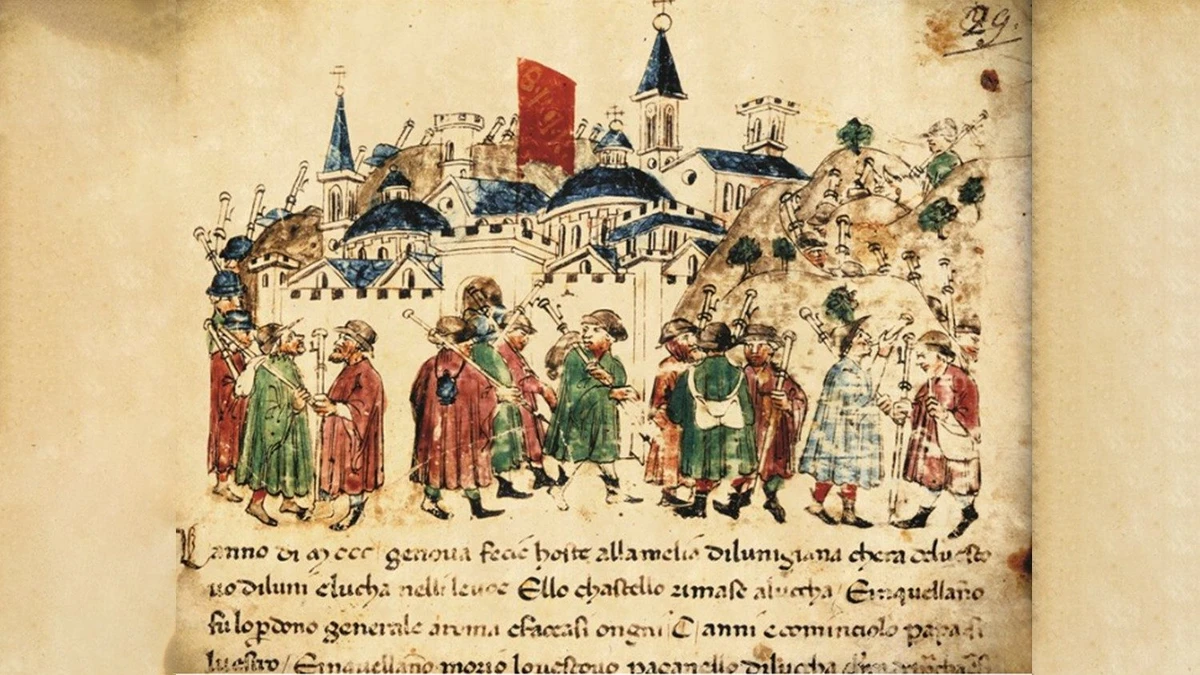 29.
Lanno di mccc genoua fecie hoste allamelia dilunigiana chera deluesco
uo diluni elucha nelli Ello chastello rimase aluccha / Einquellano
fu lo pdono generale aroma efaceasi ongni C anni ecominciolo papa si
luestro / Einquellano morio louescouo paganello dilucha